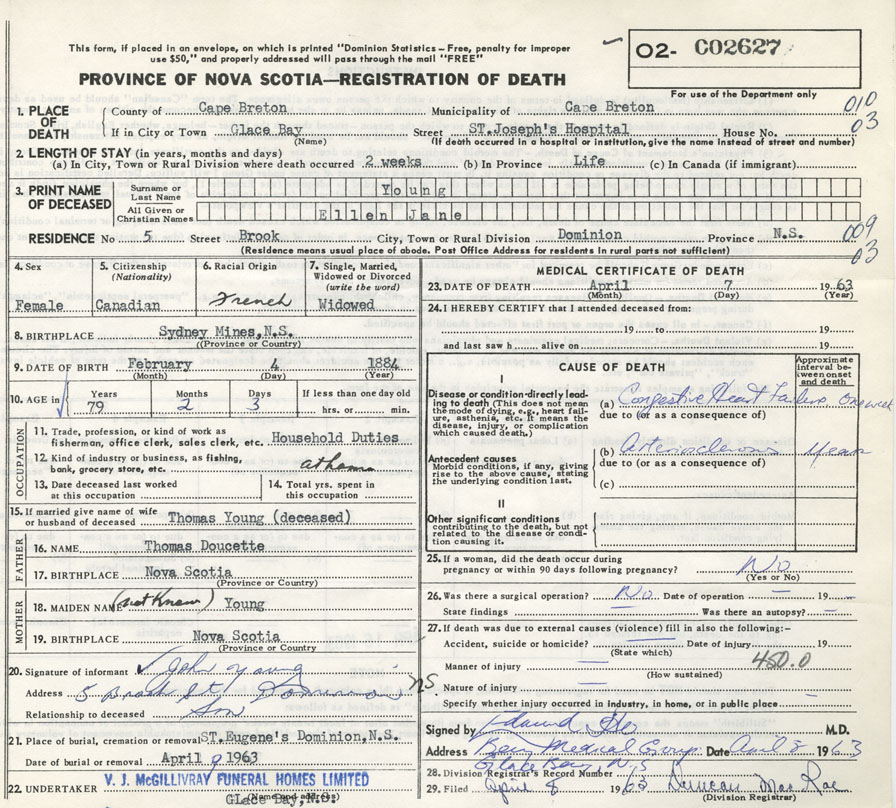 This form, if placed in an envelope, on which is printed "Dominion Statistics – Free, penalty for improper
use $50," and properly addressed will pass through the mail "FREE"
O2- C02627
For use of the Department only
PROVINCE OF NOVA SCOTIA—REGISTRATION OF DEATH
1. PLACE OF DEATH
County of Cape Breton Municipality of Cape Breton 010
If in City or Town Glace Bay Street ST.Joseph's Hospital House No. 03
(Name) (If death occurred in a hospital or institution, give the name instead of street and number)
2. LENGTH OF STAY (in years, months and days)
(a) In City, Town or Rural Division where death occurred 2 weeks (b) In Province Life (c) In Canada (if immigrant)
3. PRINT NAME OF DECEASED
Surname or Last Name Young
All Given or Christian Names Ellen Jane
RESIDENCE No 5 Street Brook City, Town or Rural Division Dominion Province N.S. 009
(Residence means usual place of abode. Post Office Address for residents in rural parts not sufficient) 03
4. Sex Female
5. Citizenship (Nationality) Canadian
6. Racial Origin French
7. Single, Married, Widowed or Divorced (write the word) Widowed
8. BIRTHPLACE Sydney Mines,N.S.
(Province or Country)
9. DATE OF BIRTH February 4 1884
(Month) (Day) (Year)
10. AGE in Years 79 Months 2 Days 3 If less than one day old hrs. or min.
OCCUPATION
11. Trade, profession, or kind of work as
fisherman, office clerk, sales clerk, etc. Household Duties
12. Kind of industry or business, as fishing,
bank, grocery store, etc. at home
13. Date deceased last worked at this occupation
14. Total yrs. spent in this occupation
15. If married give name of wife
or husband of deceased Thomas Young (deceased)
FATHER
16. NAME Thomas Doucette
17. BIRTHPLACE Nova Scotia
(Province or Country)
MOTHER
18. MAIDEN NAME (not Known) Young
19. BIRTHPLACE Nova Scotia
(Province or Country)
20. Signature of informant John Young
Address 5 Brook St, Dominion NS
Relationship to deceased Son
21. Place of burial, cremation or removal ST.Eugene's Dominion,N.S.
Date of burial or removal April 9 1963
22. UNDERTAKER V. J. McGILLIVRAY FUNERAL HOMES LIMITED
(Name and address)
Glace Bay,N.S.
MEDICAL CERTIFICATE OF DEATH
23. DATE OF DEATH April 7 1963
(Month) (Day) (Year)
24. I HEREBY CERTIFY that I attended deceased from:
19 to 19
and last saw h alive on 19
CAUSE OF DEATH
Approximate interval between onset and death
I
Disease or condition directly leading to death (This does not mean
the mode of dying, e.g., heart failure, asthenia, etc. It means the
disease, injury, or complication
which caused death.)
(a) Congestive Heart Failure one week
due to (or as a consequence of)
Antecedent causes
Morbid conditions, if any, giving
rise to the above cause, stating
the underlying condition last.
(b) Arteriosclerosis Years
due to (or as a consequence of)
(c)
II
Other significant conditions
contributing to the death, but not
related to the disease or condition causing it.
25. If a woman, did the death occur during
pregnancy or within 90 days following pregnancy? No
(Yes or No)
26. Was there a surgical operation? No Date of operation 19
State findings Was there an autopsy?
27. If death was due to external causes (violence) fill in also the following:-
Accident, suicide or homicide? Date of injury 19
(State which)
Manner of injury 450.0
(How sustained)
Nature of injury
Specify whether injury occurred in industry, in home, or in public place
Signed by M.D.
Address Medical Group Date April 8 1963
Glace Bay, N.S
28. Division Registrar's Record Number
29. Filed April 8 1963 Duncan MacRae
(Division Registrar)